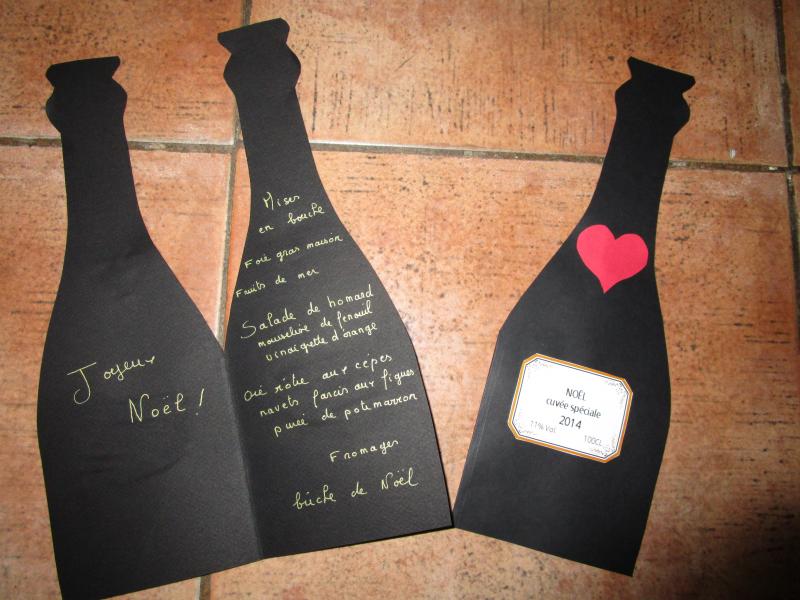 Joyeux
Noël !
Mises
en bouche
Foie gras maison
Fruits de mer
Salade de homard
mousseline de fenouil
vinaigrette d'orange
Oie rôtie aux cèpes
navets farcis aux figues
purée de potimarron
Fromages
bûche de Noël
NOËL
cuvée spéciale
2014
11% Vol. 100CL